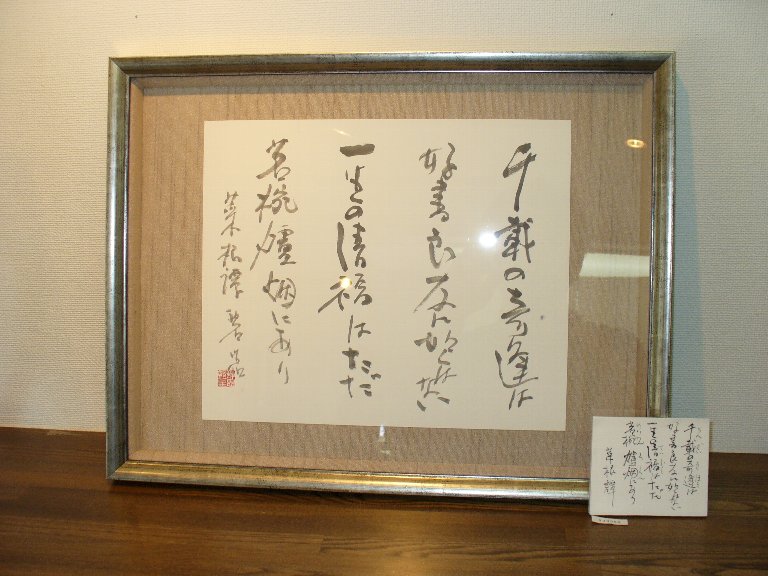 千載の奇逢は
好書良友に如く無い
一生の清福はただ
茗椀爐烟にあり
菜根譚
千載の奇逢は
好書良友に如く無い
一生の清福はただ
茗椀爐烟にあり
菜根譚